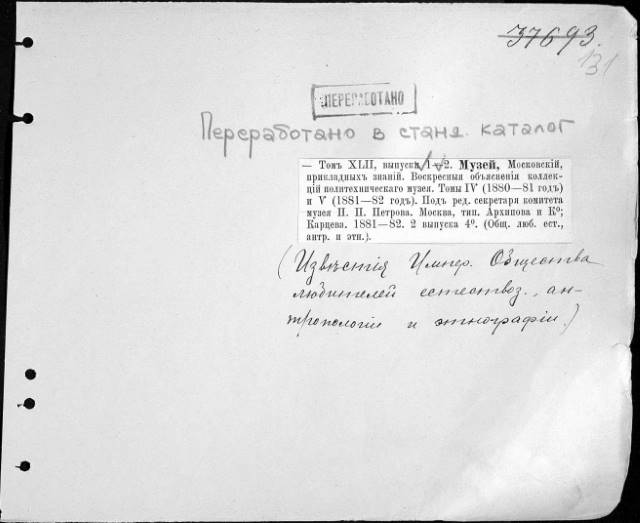 37693.
131
ПЕРЕРАБОТАНО
Переработано в станд. каталог
— Томъ XLII, выпуски 1—2. Музей, Московскій,
прикладныхъ знаній. Воскресныя объясненія коллек-
цій политехническаго музея. Томы IV (1880—81 годъ)
и V (1881—82 годъ). Подъ ред. секретаря комитета
музея Н. П. Петрова. Москва, тип. Архипова и К⁰;
Карцева. 1881—82. 2 выпуска 4⁰. (Общ. люб. ест.,
антр. и этн.).
(Извѣстія Импер. Общества
любителей естествоз., ан-
тропологіи и этнографіи.)